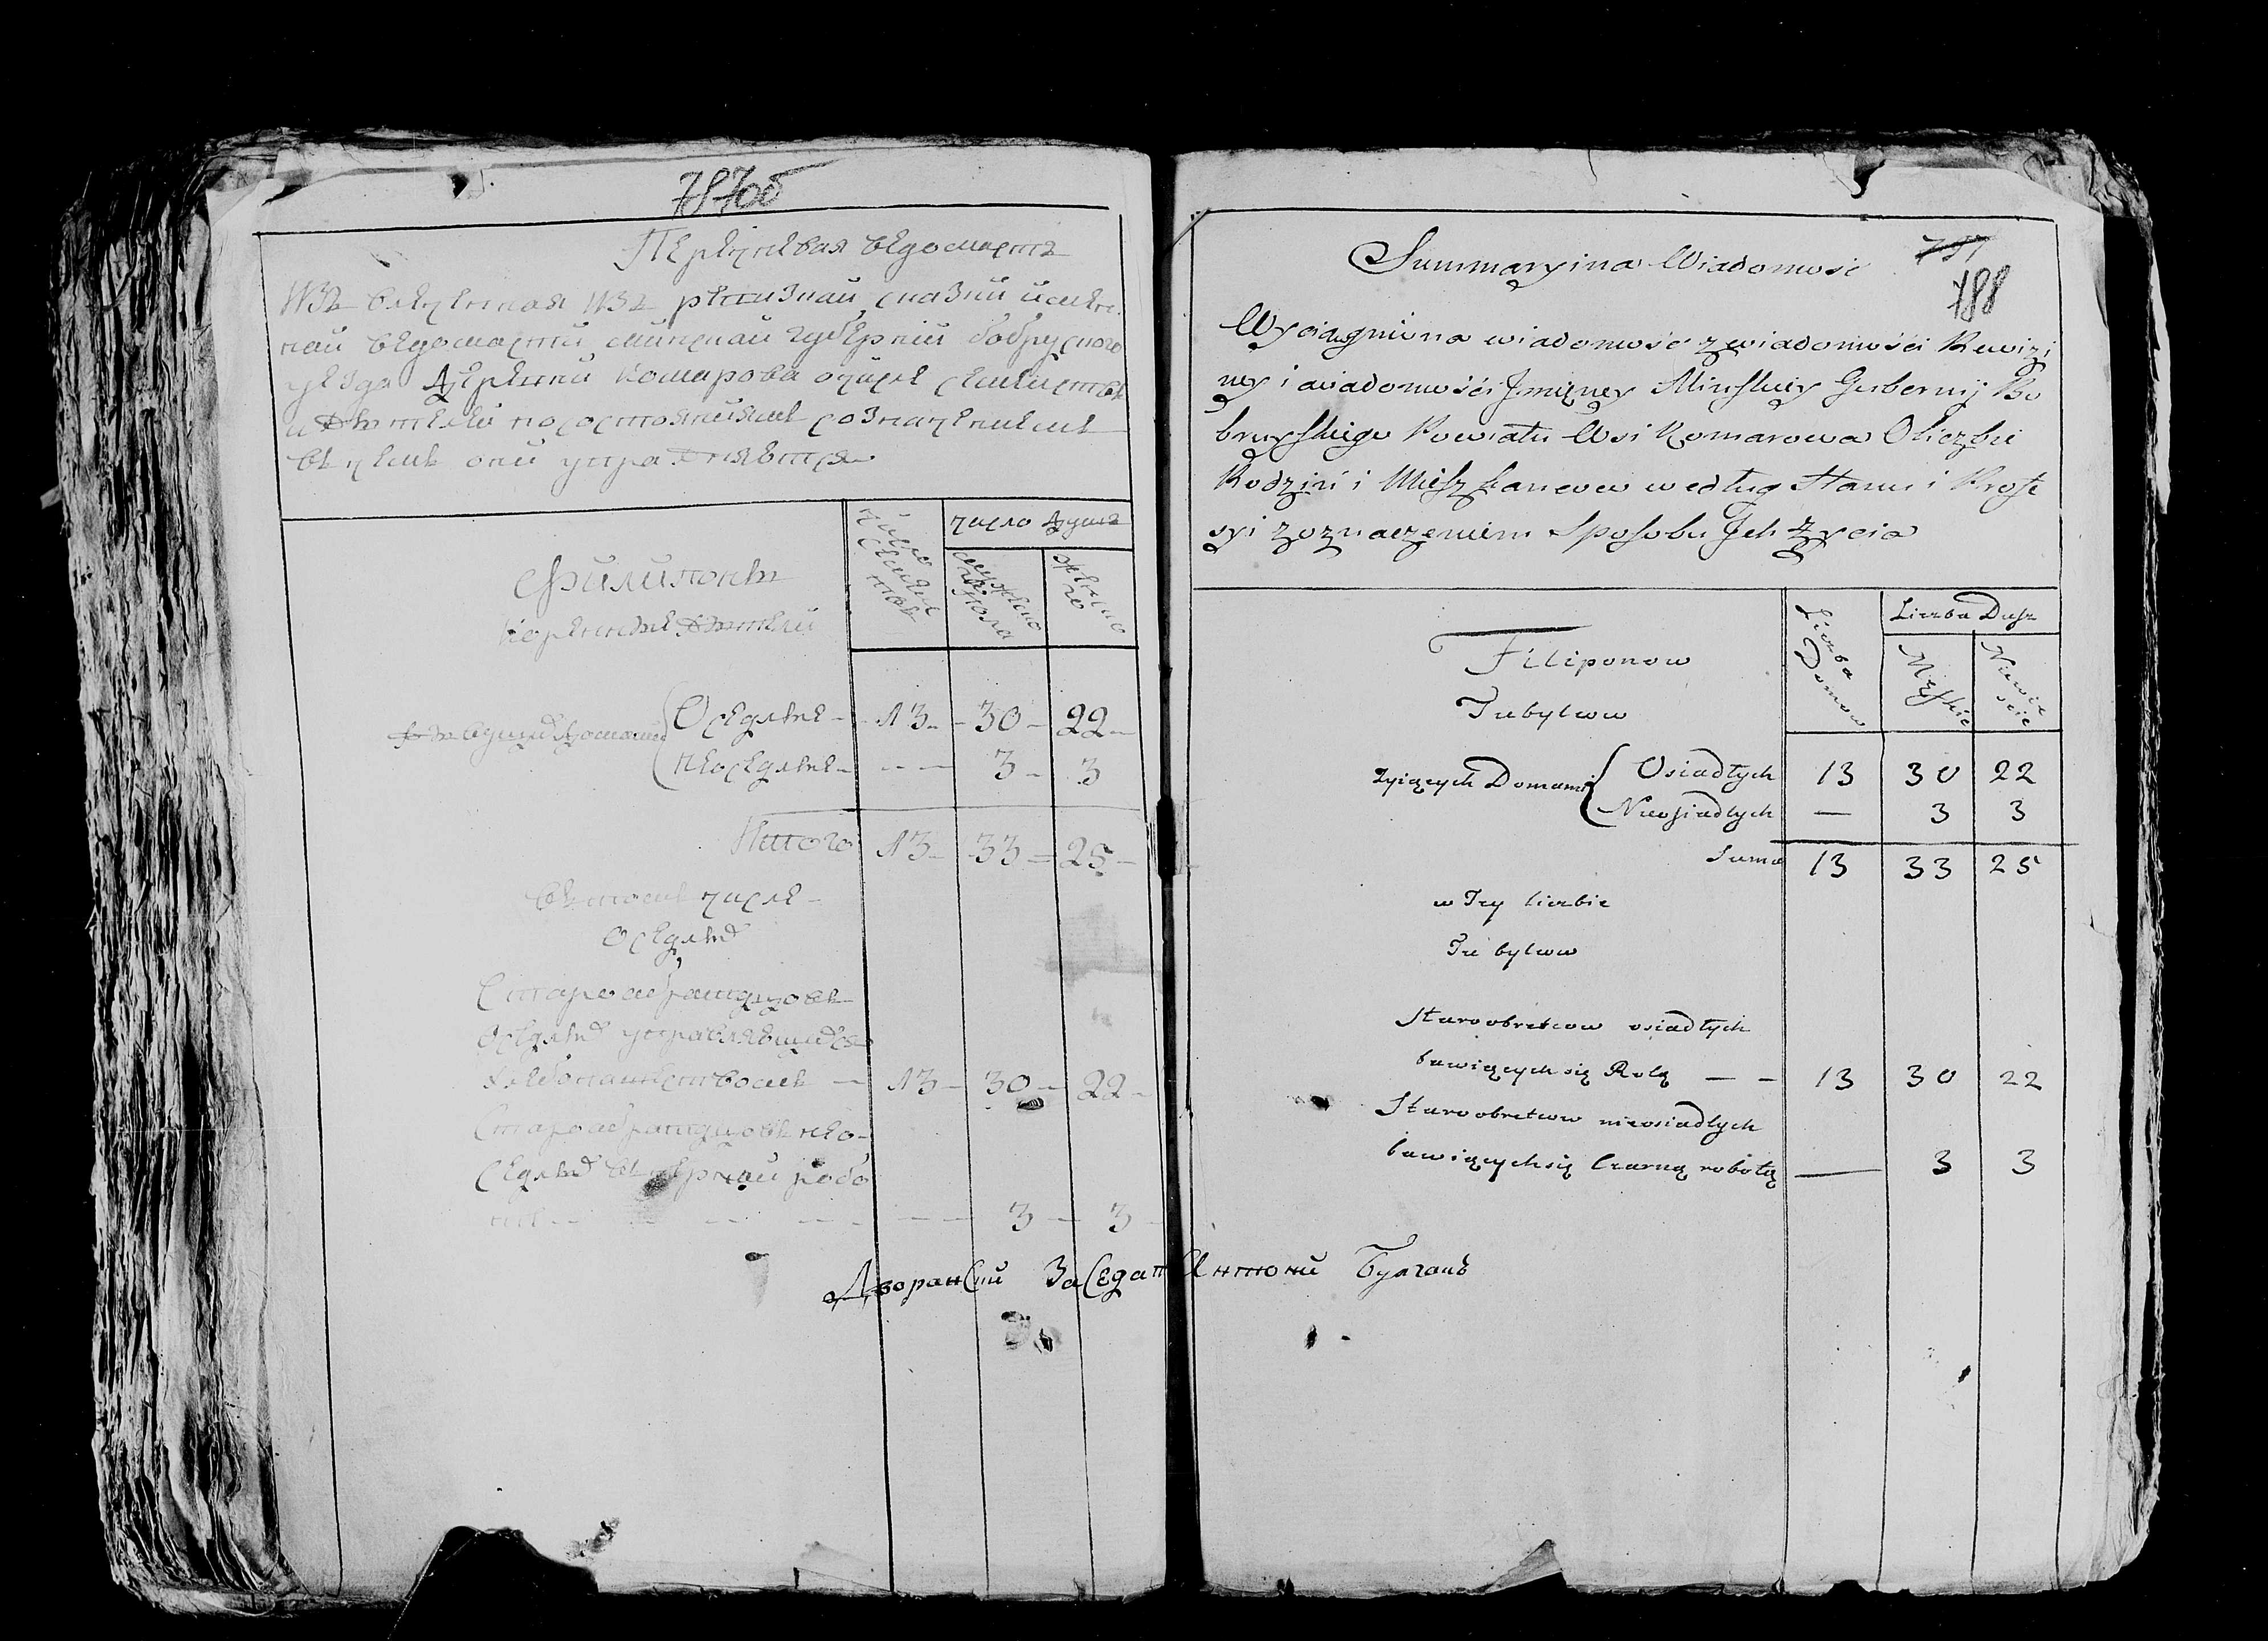 787об
Перечневая ведомость
изъ влеченная изъ ревизкай сказки имен
най ведомасти минскай губернии бобруского
уезда деревни Комарова очисле семеиствъ
и жителей посостояниямъ созначениемъ
въ чемъ они упражняются
Филипонъ
Кореные жители
число семеиствъ
число душъ
мужеска пола
женско го
живущих домами
Оседлые 13 30 22
неоседлые — 3 3
Иттого 13 33 25
въ томъ числе
Оседлых
Староабратцовъ
оседлых управляющихся
хлебопашествомъ — 13 30 22
Староабратцовъ нео-
седлых въ чернай рабо
те — — — 3 3
Дворански Заседат Антони Булгакъ
Summaryina Wiadomosc
797
788
Wyciągniona wiadomość z wiadomości Rewizi
ney i wiadomości Jmięney Minskiey Gubernij Bo
bruyskiego Powiatu Wsi Komarowa O liczbie
Rodzin i Mieszkancow według Stanu i Profe
syi z oznaczeniem Sposobu Jch życia
Filiponow
Tubylcow
Liczba Domow
Liczba Dusz
Męskie
Niewie scie
żyiących Domami
Osiadłych 13 30 22
Nieosiadłych — 3 3
Suma 13 33 25
w Tey liczbie
Tu bylcow
Staroobretcow osiadłych
bawiących się Rolą — — 13 30 22
Staroobretcow nieosiadłych
bawiących się Czarną robotą — 3 3